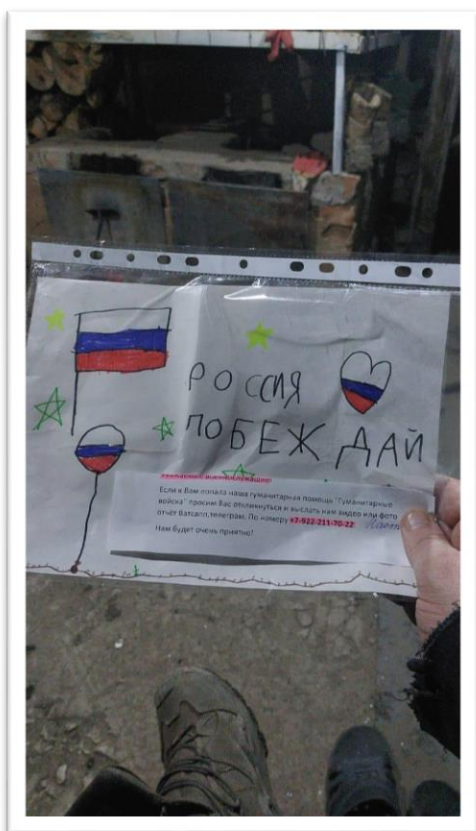 РОССИЯ
ПОБЕЖДАЙ
Если к Вам попала наша гуманитарная помощь "Гуманитарные
войска" просим Вас откликнуться и выслать нам видео или фото
отчёт Ватсапп, телеграм. По номеру +7-922-211-70-22
Нам будет очень приятно!